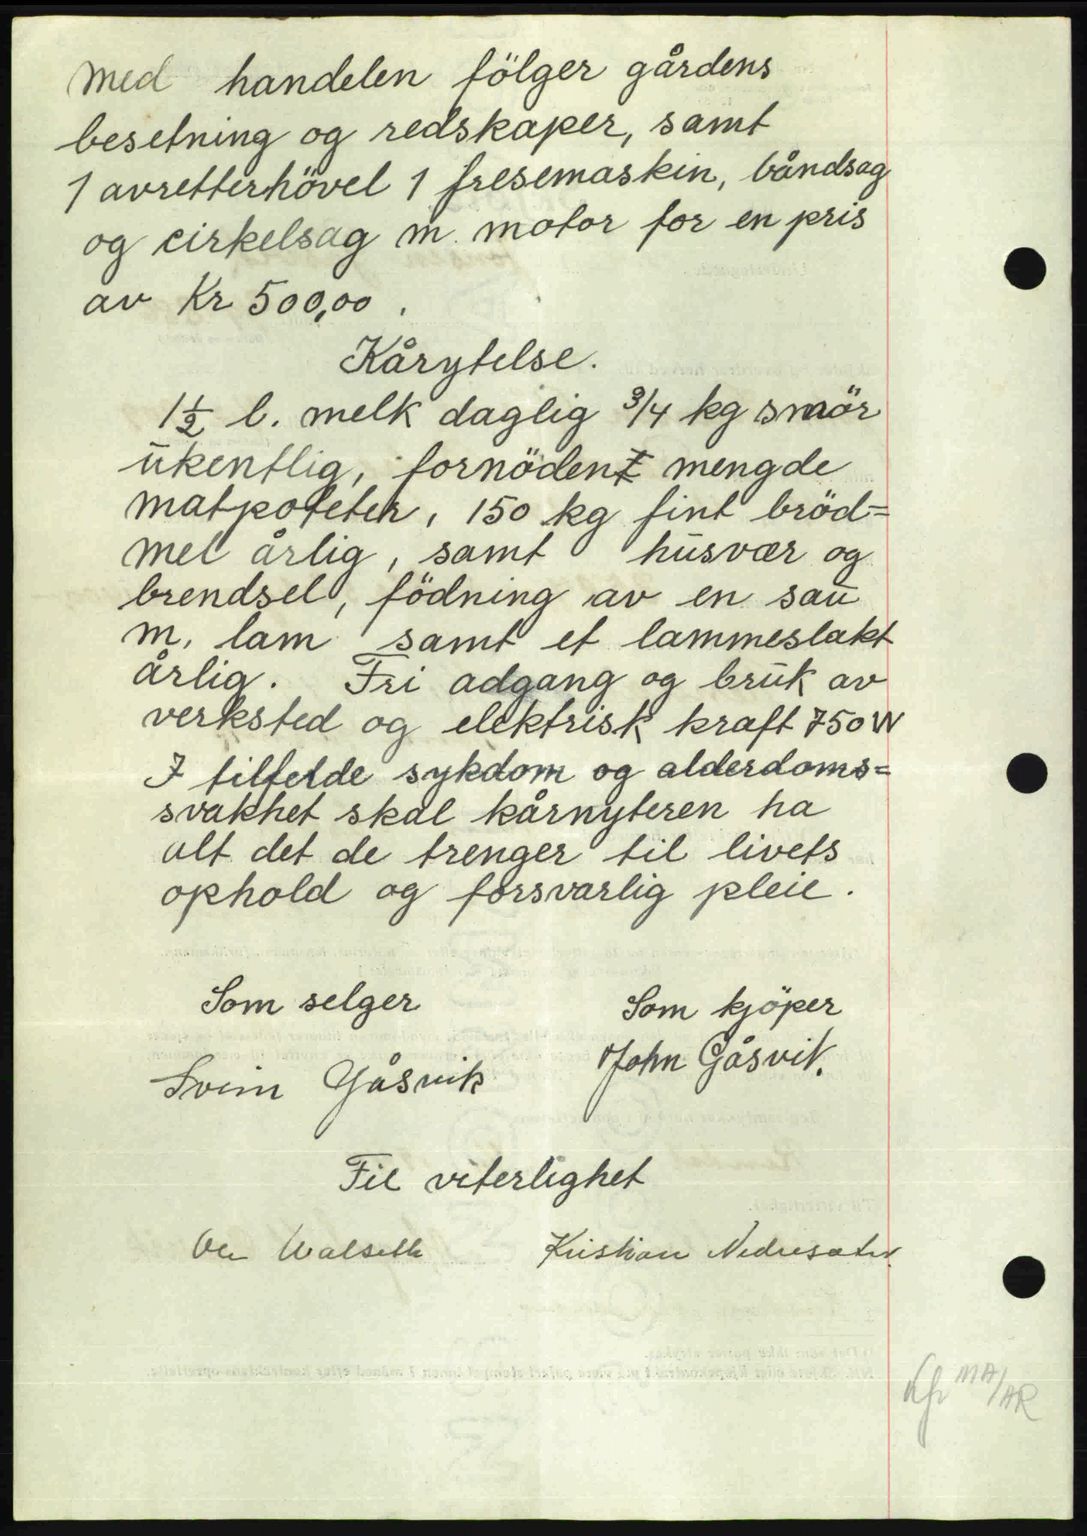 Med handelen fölger gårdens
besetning og redskaper, samt
1 avretterhövel 1 fresemaskin, båndsag
og cirkelsag m. motor for en pris
av Kr 500,00.
Kårytelse.
1 1/2 l. melk daglig 3/4 kg smör
ukentlig, fornöden mengde
matpoteter, 150 kg fint bröd=
mel årlig, samt husvær og
brendsel, födning av en sau
m. lam samt et lammeslakt
årlig. Fri adgang og bruk av
verksted og elektrisk kraft 750 W
I tilfelde sykdom og alderdoms=
svakhet skal kårnyteren ha
alt det de trenger til livets
ophold og forsvarlig pleie.
Som selger
Som kjöper
Svein Gåsvik
John Gåsvik.
Til viterlighet
Ole Walseth
Kristian Nedresæter
Kfr MA/AR